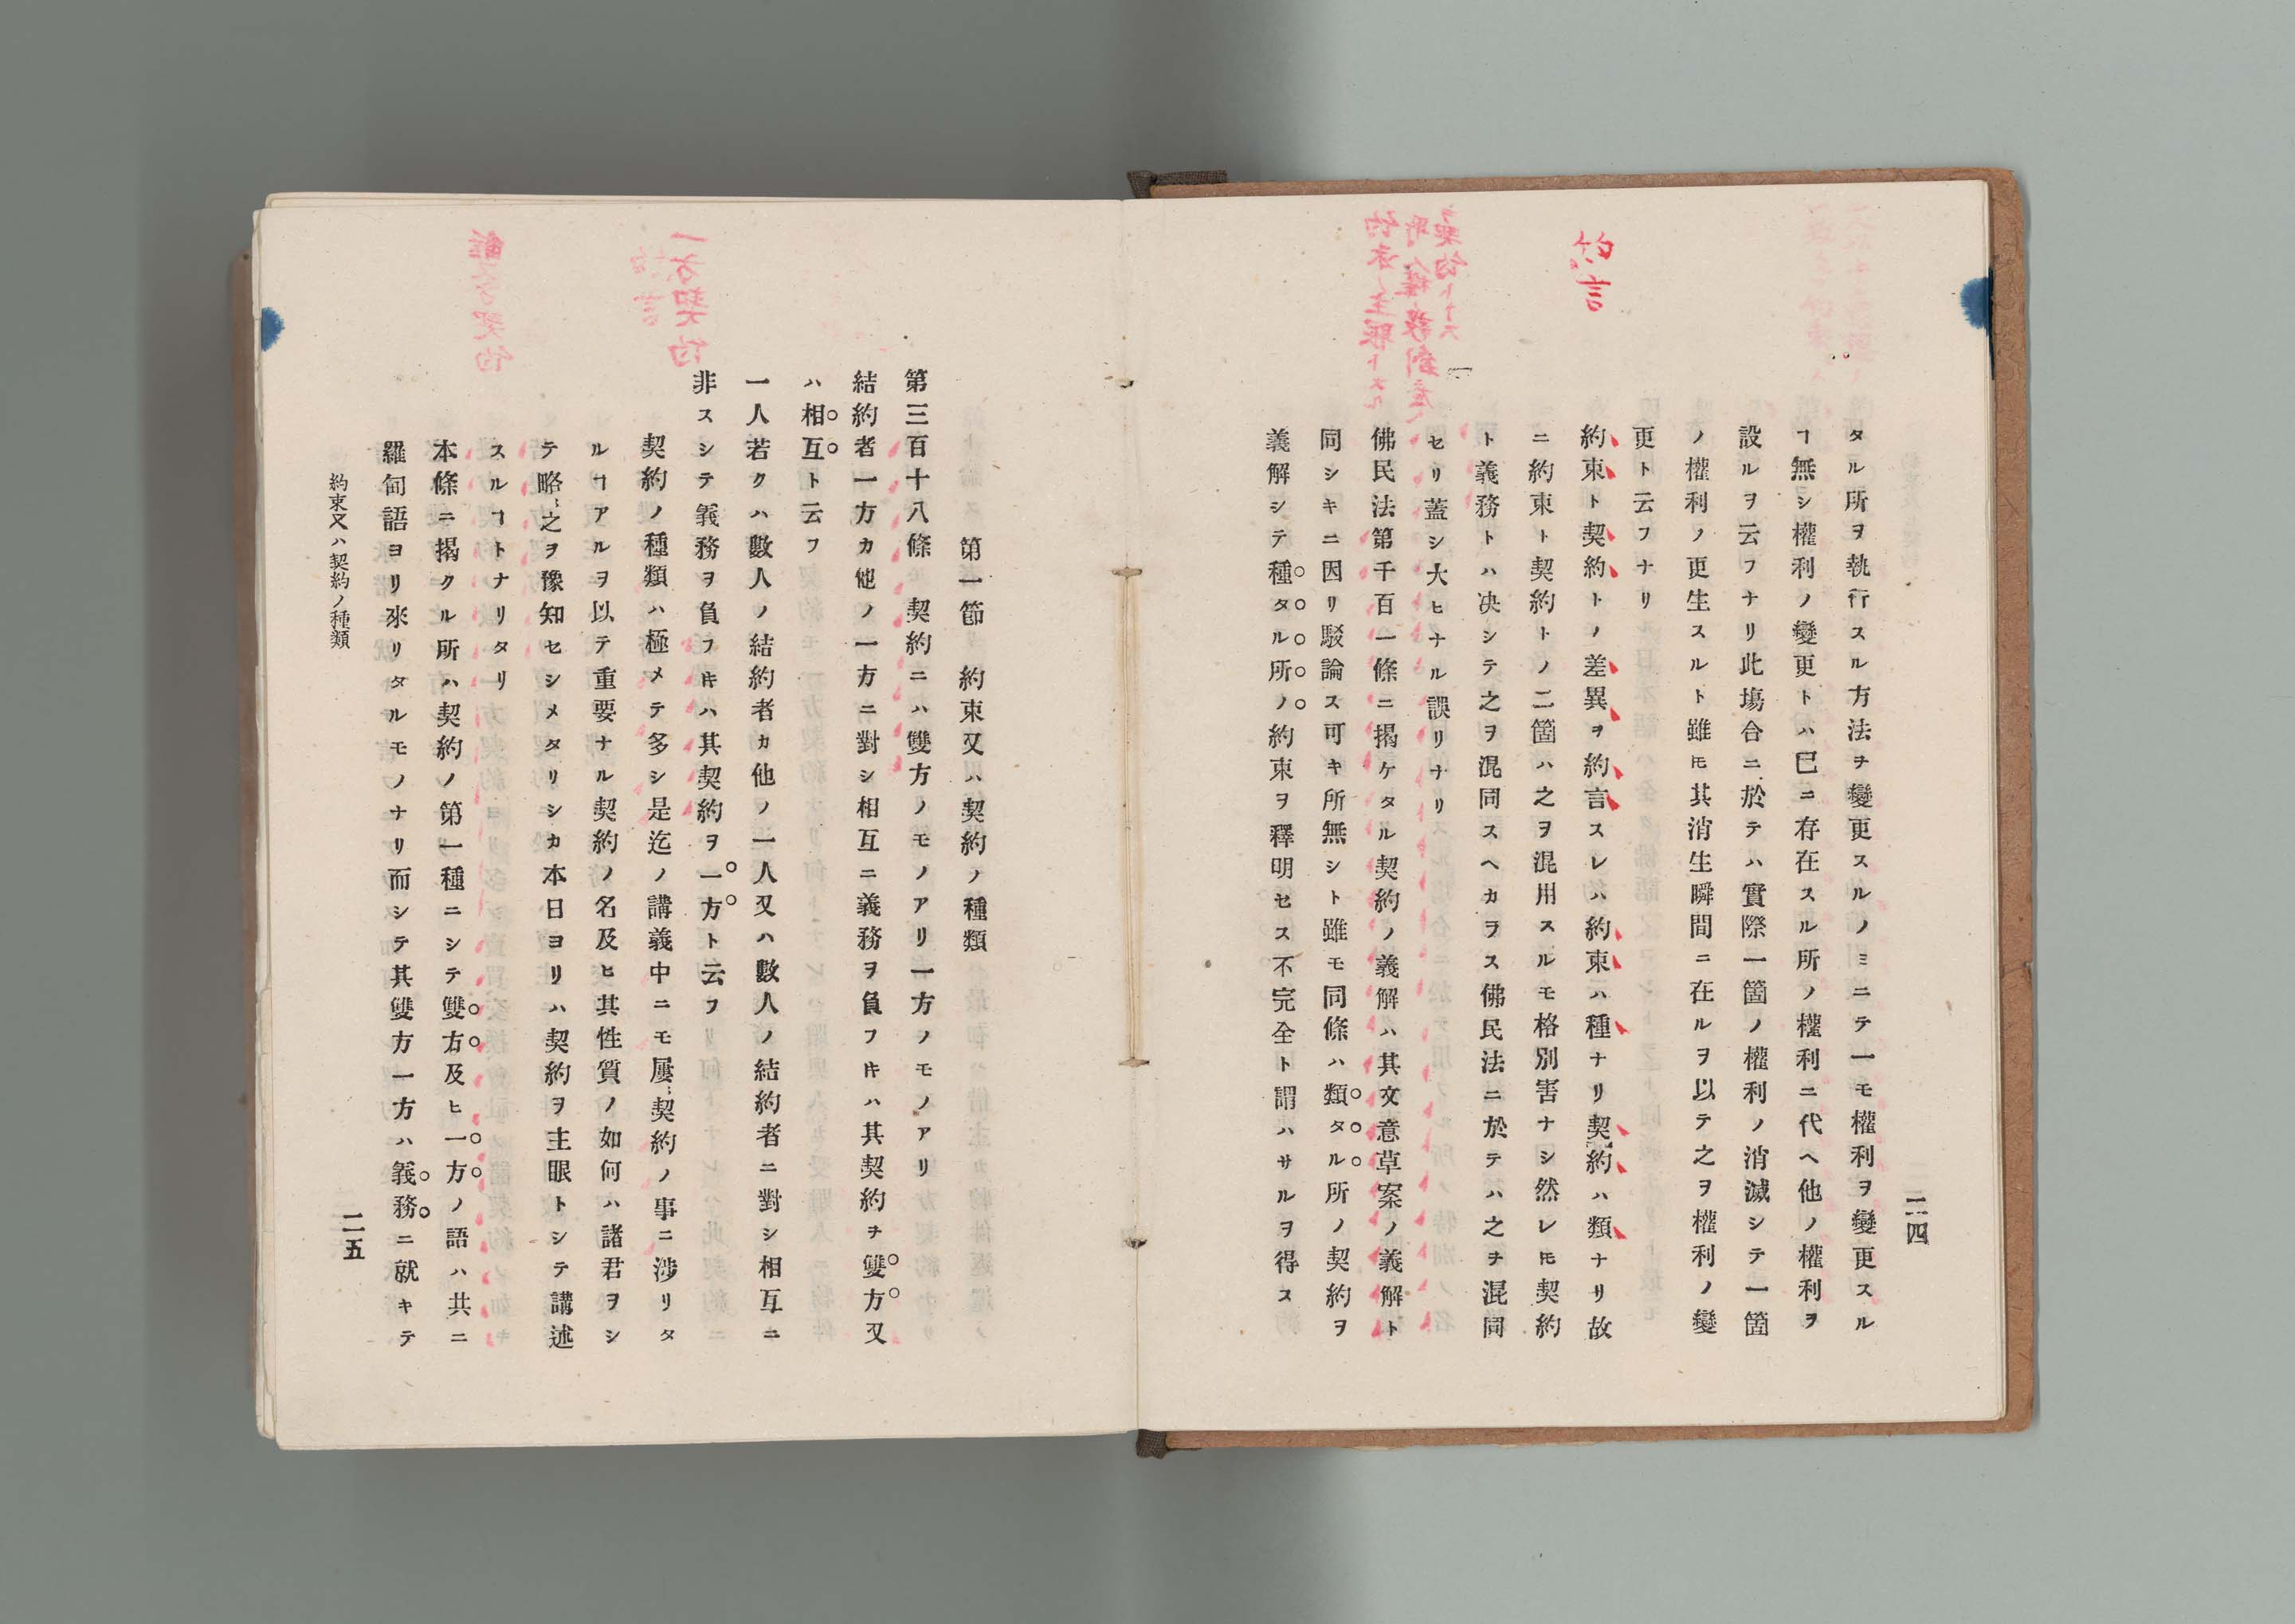 約言
タル所ヲ執行スル方法ヲ變更スルノミニテ一モ權利ヲ變更スル
ヿ無シ權利ノ變更トハ已ニ存在スル所ノ權利ニ代ヘ他ノ權利ヲ
設ルヲ云フナリ此塲合ニ於テハ實際一箇ノ權利ノ消滅シテ一箇
ノ權利ノ更生スルト雖モ其消生瞬間ニ在ルヲ以テ之ヲ權利ノ變
更ト云フナリ
約束ト契約トノ差異ヲ約言スレハ約束ハ種ナリ契約ハ類ナリ故
ニ約束ト契約トノ二箇ハ之ヲ混用スルモ格別害ナシ然レ𪜈契約
ト義務トハ决シテ之ヲ混同スヘカラス佛民法ニ於テハ之ヲ混同
セリ蓋シ大ヒナル誤リナリ
佛民法第千百一條ニ揭ケタル契約ノ義解ハ其文意草案ノ義解ト
同シキニ因リ駁論ス可キ所無シト雖モ同條ハ類タル所ノ契約ヲ
義解シテ種タル所ノ約束ヲ釋明セス不完全ト謂ハサルヲ得ス
二四
第一節 約束又ハ契約ノ種類
第三百十八條 契約ニハ雙方ノモノアリ一方ノモノアリ
結約者一方カ他ノ一方ニ對シ相互ニ義務ヲ負フ𪜈ハ其契約ヲ雙方又
ハ相互ト云フ
一人若クハ數人ノ結約者カ他ノ一人又ハ數人ノ結約者ニ對シ相互ニ
非スシテ義務ヲ負フ𪜈ハ其契約ヲ一方ト云フ
契約ノ種類ハ極メテ多シ是迄ノ講義中ニモ屢〻契約ノ事ニ涉リタ
ルヿアルヲ以テ重要ナル契約ノ名及ヒ其性質ノ如何ハ諸君ヲシ
テ略〻之ヲ豫知セシメタリシカ本日ヨリハ契約ヲ主眼トシテ講述
スルヿトナリタリ
本條ニ揭クル所ハ契約ノ第一種ニシテ雙方及ヒ一方ノ語ハ共ニ
羅甸語ヨリ來リタルモノナリ而シテ其雙方一方ハ義務ニ就キテ
約束又ハ契約ノ種類
二五